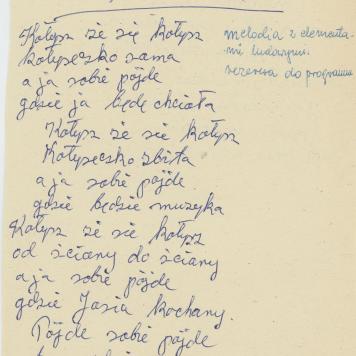 Kołysz że się kołysz
kołyseczko sama
a ja sobie pójdę
gdzie ja będę chciała
Kołysz że się kołysz
Kołyseczko zbita
a ja sobie pójdę
gdzie będzie muzyka
Kołysz że się kołysz
od ściany do ściany
a ja sobie pójdę
gdzie Jasia kochany.
Pójdę sobie pójdę
melodia z elementa-
mi ludowymi.
rezerwa do programu